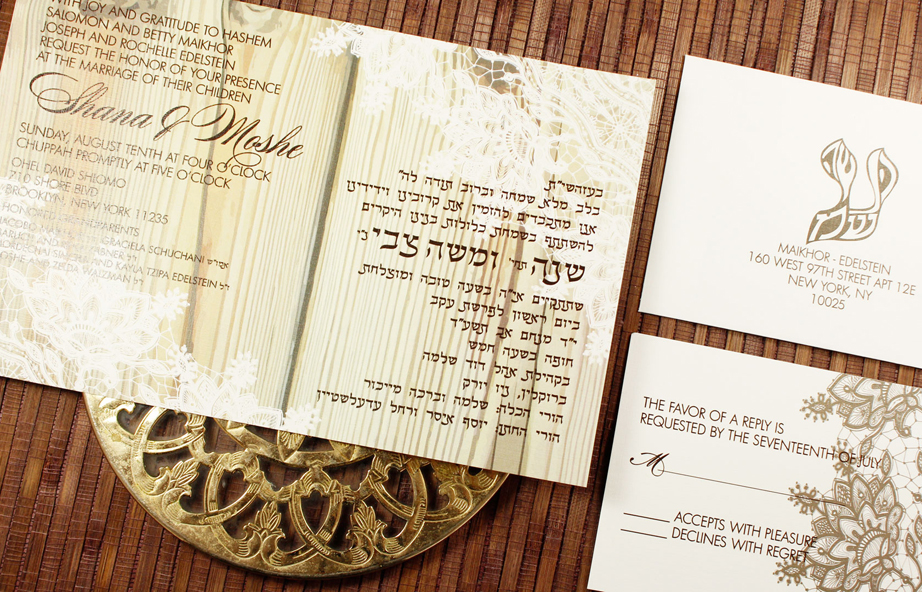 WITH JOY AND GRATITUDE TO HASHEM
SALOMON AND BETTY MAIKHOR
JOSEPH AND ROCHELLE EDELSTEIN
REQUEST THE HONOR OF YOUR PRESENCE
AT THE MARRIAGE OF THEIR CHILDREN
Shana & Moshe
SUNDAY, AUGUST TENTH AT FOUR O'CLOCK
CHUPPAH PROMPTLY AT FIVE O'CLOCK
OHEL DAVID SHLOMO
710 SHORE BLVD
BROOKLYN, NEW YORK 11235
HONORED GRANDPARENTS
GRACIELA SCHUCHANI
AND KAYLA TZIPA EDELSTEIN ז"ל
WAIZMAN ז"ל
בעזהשי"ת
בלב מלא שמחה וברוב תודה לה'
אנו מתכבדים להזמין את קרובינו וידידינו
להשתתף בשמחת כלולות בנינו היקרים
שנה תחי' ומשה צבי ני'
שתתקיים אי"ה בשעה טובה ומוצלחת
ביום ראשון לפרשת עקב
י"ד מנחם אב תשע"ד
חופה בשעה חמש
בקהילת אהל דוד שלמה
ברוקלין, ניו יורק
הורי הכלה: שלמה וברכה מייכור
הורי החתן: יוסף איסר ורחל עדעלשטיין
MAIKHOR - EDELSTEIN
160 WEST 97TH STREET APT 12E
NEW YORK, NY
10025
THE FAVOR OF A REPLY IS
REQUESTED BY THE SEVENTEENTH OF JULY
M
ACCEPTS WITH PLEASURE
DECLINES WITH REGRET